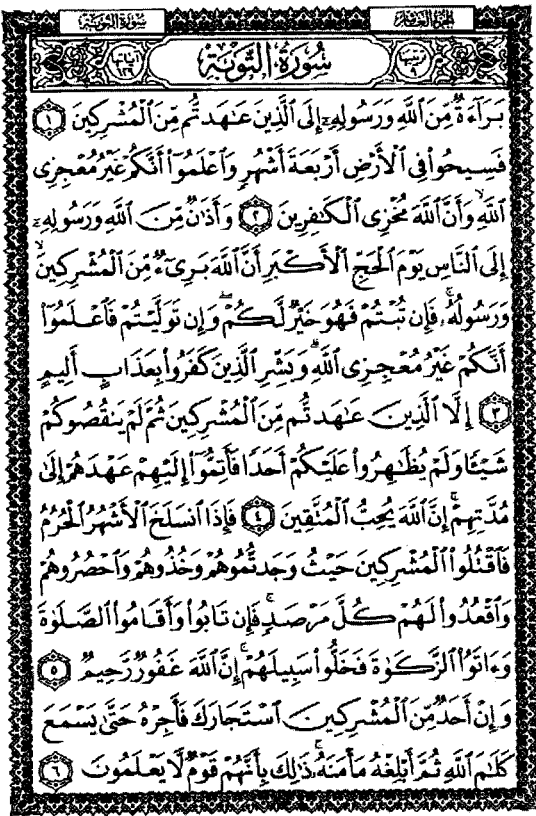 سورة التوبة الجزء العاشر
آياتها ١٢٩ سُورَةُ التَّوْبَةِ ترتيبها ٩
بَرَآءَةٌ مِّنَ ٱللَّهِ وَرَسُولِهِۦٓ إِلَى ٱلَّذِينَ عَٰهَدتُّم مِّنَ ٱلْمُشْرِكِينَ ١
فَسِيحُوا۟ فِى ٱلْأَرْضِ أَرْبَعَةَ أَشْهُرٍ وَٱعْلَمُوٓا۟ أَنَّكُمْ غَيْرُ مُعْجِزِى
ٱللَّهِ ۙ وَأَنَّ ٱللَّهَ مُخْزِى ٱلْكَٰفِرِينَ ٢ وَأَذَٰنٌ مِّنَ ٱللَّهِ وَرَسُولِهِۦٓ
إِلَى ٱلنَّاسِ يَوْمَ ٱلْحَجِّ ٱلْأَكْبَرِ أَنَّ ٱللَّهَ بَرِىٓءٌ مِّنَ ٱلْمُشْرِكِينَ ۙ
وَرَسُولُهُۥ ۚ فَإِن تُبْتُمْ فَهُوَ خَيْرٌ لَّكُمْ ۖ وَإِن تَوَلَّيْتُمْ فَٱعْلَمُوٓا۟
أَنَّكُمْ غَيْرُ مُعْجِزِى ٱللَّهِ ۗ وَبَشِّرِ ٱلَّذِينَ كَفَرُوا۟ بِعَذَابٍ أَلِيمٍ
٣ إِلَّا ٱلَّذِينَ عَٰهَدتُّم مِّنَ ٱلْمُشْرِكِينَ ثُمَّ لَمْ يَنقُصُوكُمْ
شَيْـًٔا وَلَمْ يُظَٰهِرُوا۟ عَلَيْكُمْ أَحَدًا فَأَتِمُّوٓا۟ إِلَيْهِمْ عَهْدَهُمْ إِلَىٰ
مُدَّتِهِمْ ۚ إِنَّ ٱللَّهَ يُحِبُّ ٱلْمُتَّقِينَ ٤ فَإِذَا ٱنسَلَخَ ٱلْأَشْهُرُ ٱلْحُرُمُ
فَٱقْتُلُوا۟ ٱلْمُشْرِكِينَ حَيْثُ وَجَدتُّمُوهُمْ وَخُذُوهُمْ وَٱحْصُرُوهُمْ
وَٱقْعُدُوا۟ لَهُمْ كُلَّ مَرْصَدٍ ۚ فَإِن تَابُوا۟ وَأَقَامُوا۟ ٱلصَّلَوٰةَ
وَءَاتَوُا۟ ٱلزَّكَوٰةَ فَخَلُّوا۟ سَبِيلَهُمْ ۚ إِنَّ ٱللَّهَ غَفُورٌ رَّحِيمٌ ٥
وَإِنْ أَحَدٌ مِّنَ ٱلْمُشْرِكِينَ ٱسْتَجَارَكَ فَأَجِرْهُ حَتَّىٰ يَسْمَعَ
كَلَٰمَ ٱللَّهِ ثُمَّ أَبْلِغْهُ مَأْمَنَهُۥ ۚ ذَٰلِكَ بِأَنَّهُمْ قَوْمٌ لَّا يَعْلَمُونَ ٦